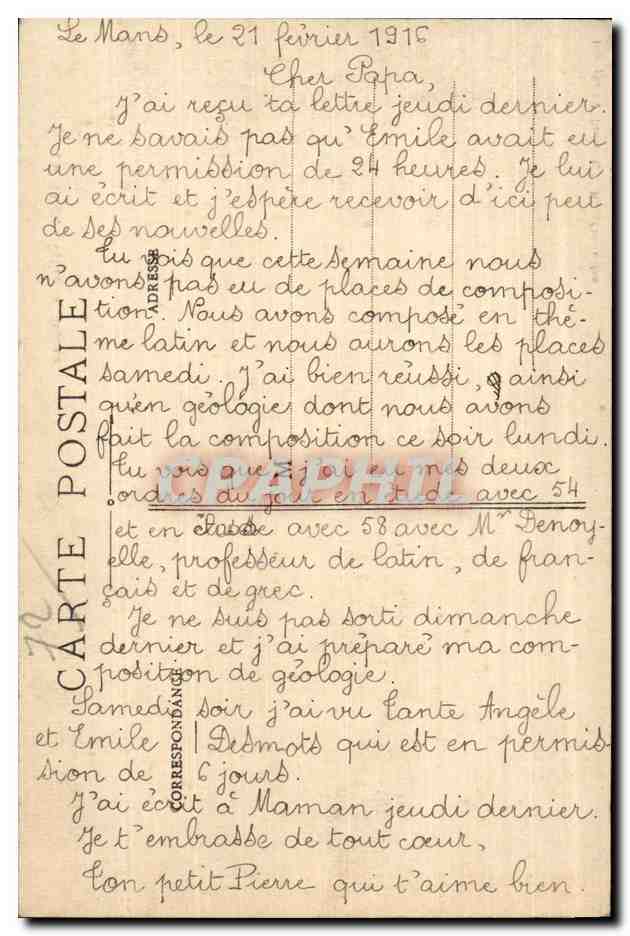 Le Mans, le 21 février 1916
Cher Papa,
J'ai reçu ta lettre jeudi dernier.
Je ne savais pas qu'Emile avait eu
une permission de 24 heures. Je lui
ai écrit et j'espère recevoir d'ici peu
de ses nouvelles.
Tu vois que cette semaine nous
n'avons pas eu de places de composi-
tion. Nous avons composé en thè-
me latin et nous aurons les places
samedi. J'ai bien réussi, ainsi
qu'en géologie dont nous avons
fait la composition ce soir lundi.
Tu vois que j'ai eu mes deux
ordres du jour en étude avec 54
et en classe avec 58 avec Mr Denoy-
elle, professeur de latin, de fran-
çais et de grec.
Je ne suis pas sorti dimanche
dernier et j'ai préparé ma com-
position de géologie.
Samedi soir j'ai vu Tante Angèle
et Emile Desmots qui est en permis-
sion de 6 jours.
J'ai écrit à Maman jeudi dernier.
Je t'embrasse de tout cœur,
Ton petit Pierre qui t'aime bien.
CARTE POSTALE
ADRESSE
CORRESPONDANCE
M
72
CPAPHIL